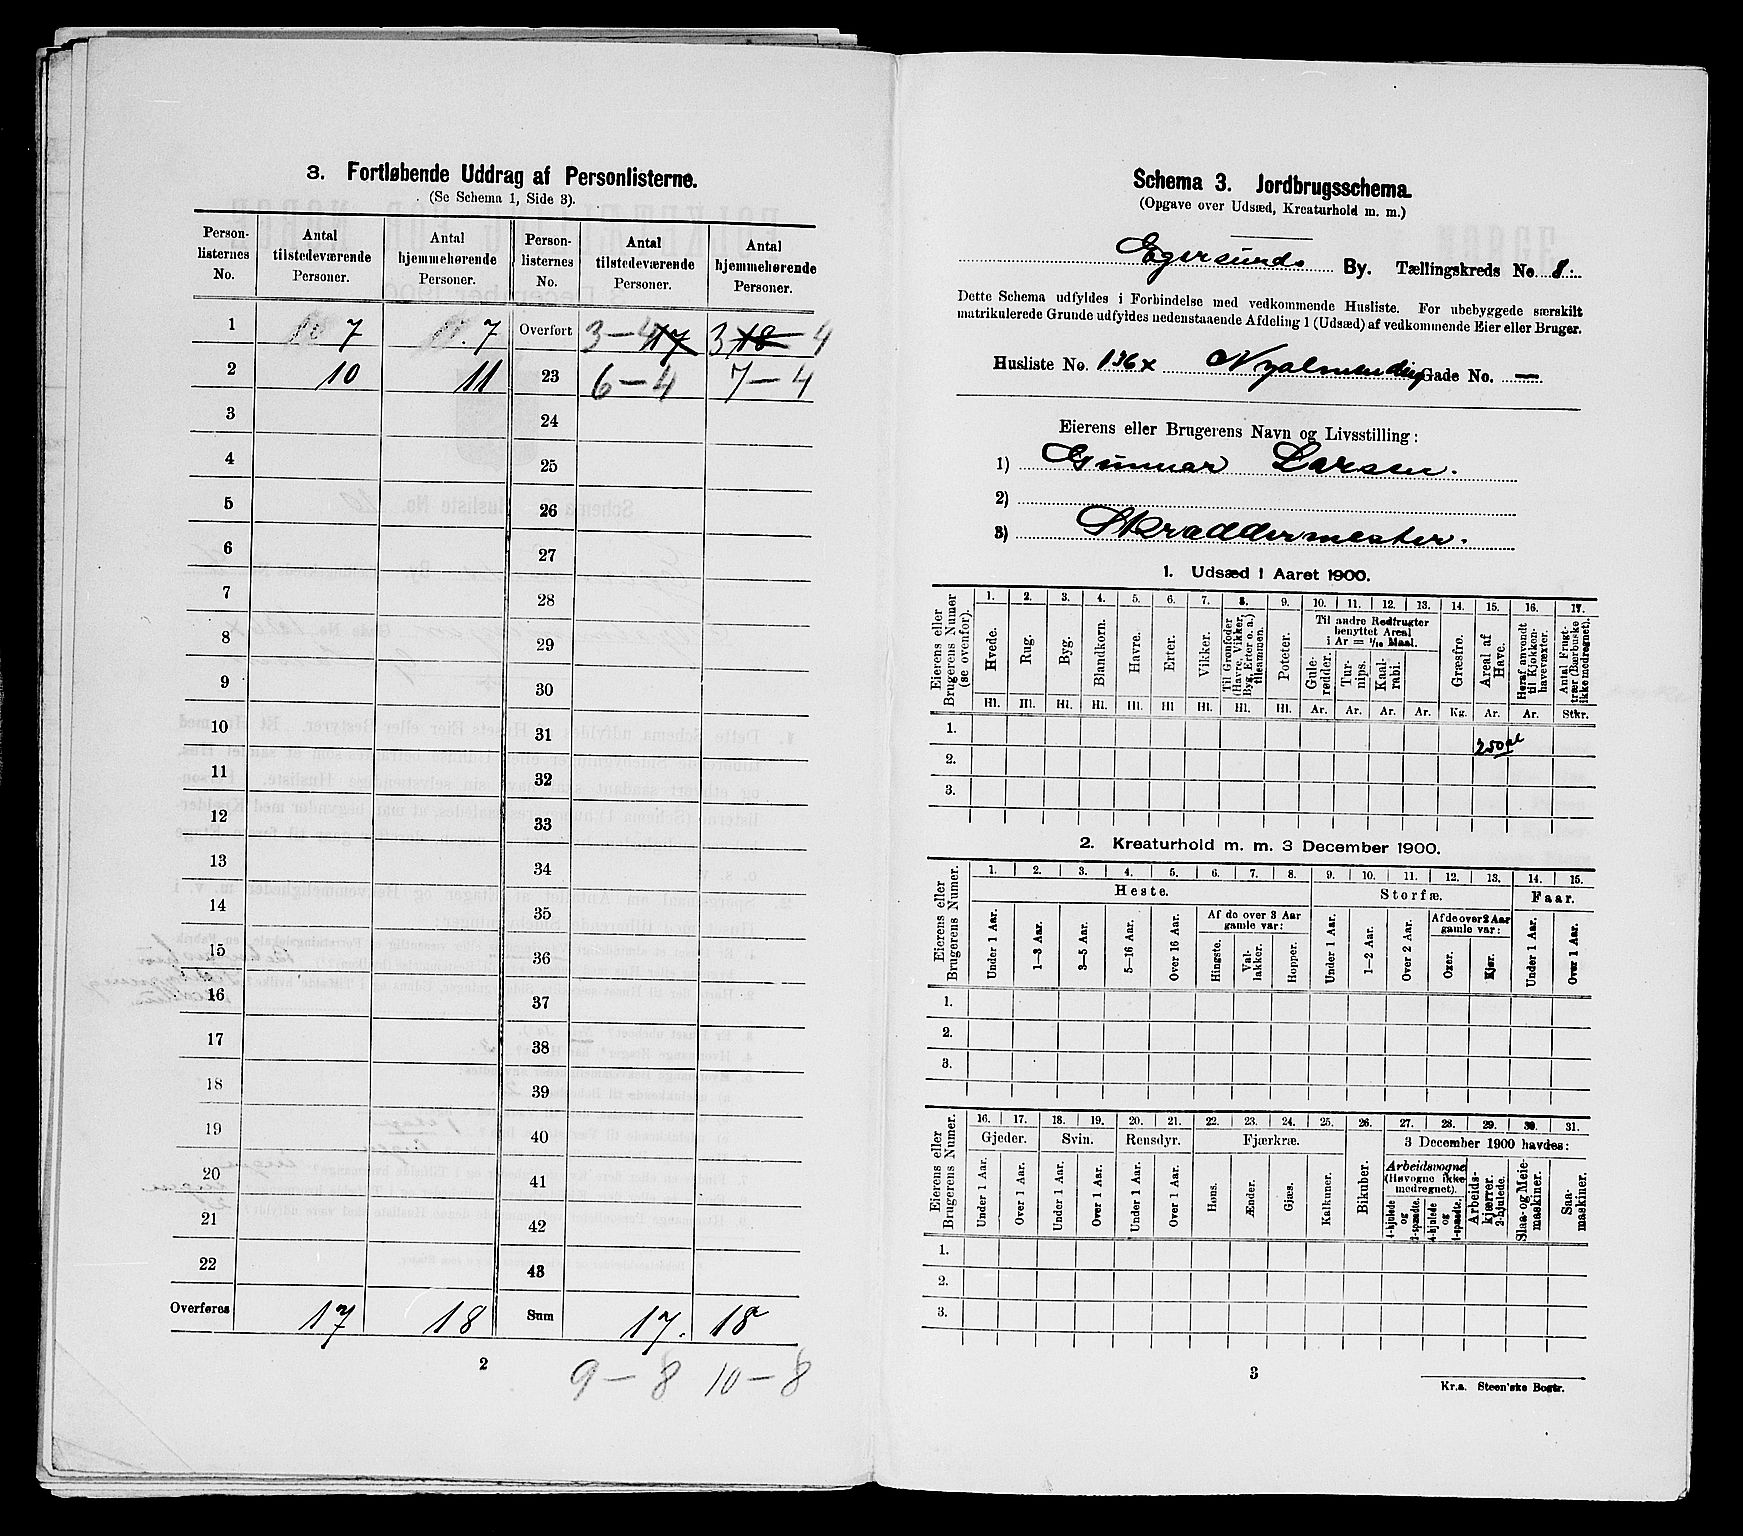 3. Fortløbende Uddrag af Personlisterne.
(Se Schema 1, Side 3).
Person-
listernes
No.
Antal
tilstedeværende
Personer.
Antal
hjemmehørende
Personer.
Person-
listernes
No.
Antal
tilstedeværende
Personer.
Antal
hjemmehørende
Personer.
1 7 7 Overført 3 – 4 17 3 18 – 4
2 10 11 23 6 – 4 7 – 4
3 24
4 25
5 26
6 27
7 28
8 29
9 30
10 31
11 32
12 33
13 34
14 35
15 36
16 37
17 38
18 39
19 40
20 41
21 42
22 43
Overføres 17 18 Sum 17. 18
2
9 – 8 10 – 8
Schema 3. Jordbrugsschema.
(Opgave over Udsæd, Kreaturhold m. m.)
Egersunds By. Tællingskreds No 8.
Dette Schema udfyldes i Forbindelse med vedkommende Husliste. For ubebyggede særskilt
matrikulerede Grunde udfyldes nedenstaaende Afdeling 1 (Udsæd) af vedkommende Eier eller Bruger.
Husliste No. 136x Nyalmending Gade No. —
Eierens eller Brugerens Navn og Livsstilling:
1) Gunnar Larsen.
2)
3) Skræddermester.
1. Udsæd i Aaret 1900.
Eierens eller
Brugerens Numer
(se ovenfor).
1. 2. 3. 4. 5. 6. 7. 8. 9. 10. 11. 12. 13. 14. 15. 16. 17.
Hvede.
Rug.
Byg.
Blandkorn.
Havre.
Erter.
Vikker.
Til Grønfoder
(Havre, Vikker,
Byg, Erter o. a.)
tilsammen.
Poteter.
Til andre Rodfrugter
benyttet Areal
i Ar = 1/10 Maal.
Gule-
rødder.
Tur-
nips.
Kaal-
rabi.
Græsfrø.
Areal af
Have.
Heraf anvendt
til Kjøkken-
havevæxter.
Antal Frugt-
trær (Bærbuske
ikke medregnet).
Hl. Hl. Hl. Hl. Hl. Hl Hl. Hl. Hl. Ar. Ar. Ar. Ar. Kg. Ar. Ar. Stkr.
1.
250 al
2.
3.
2. Kreaturhold m. m. 3 December 1900.
Eierens eller
Brugerens Numer.
1. 2. 3. 4. 5. 6. 7. 8. 9. 10. 11. 12. 13. 14. 15.
Heste. Storfæ. Faar.
Under 1 Aar.
1—3 Aar.
3—5 Aar.
5—16 Aar.
Over 16 Aar.
Af de over 3 Aar
gamle var:
Hingste.
Val-
lakker.
Hopper.
Under 1 Aar.
1—2 Aar.
Over 2 Aar.
Af de over 2 Aar
gamle var:
Oxer.
Kjør.
Under 1 Aar.
Over 1 Aar.
1.
2.
3.
Eierens eller
Brugerens Numer.
16. 17. 18. 19. 20. 21. 22. 23. 24. 25. 26. 27. 28. 29. 30. 31.
Gjeder. Svin. Rensdyr. Fjærkræ. 3 December 1900 havdes:
Under 1 Aar.
Over 1 Aar.
Under 1 Aar.
Over 1 Aar.
Under 1 Aar.
Over 1 Aar.
Høns.
Ænder.
Gjæs.
Kalkuner.
Bikuber.
Arbeidsvogne
(Høvogne ikke
medregnet).
4-hjulede
og
2-spændte.
4-hjulede
og
1-spændte.
Arbeids-
kjærrer.
2-hjulede.
Slaa- og Meie-
maskiner.
Saa-
maskiner.
1.
2.
3.
3
Kr.a. Steen'ske Bogtr.